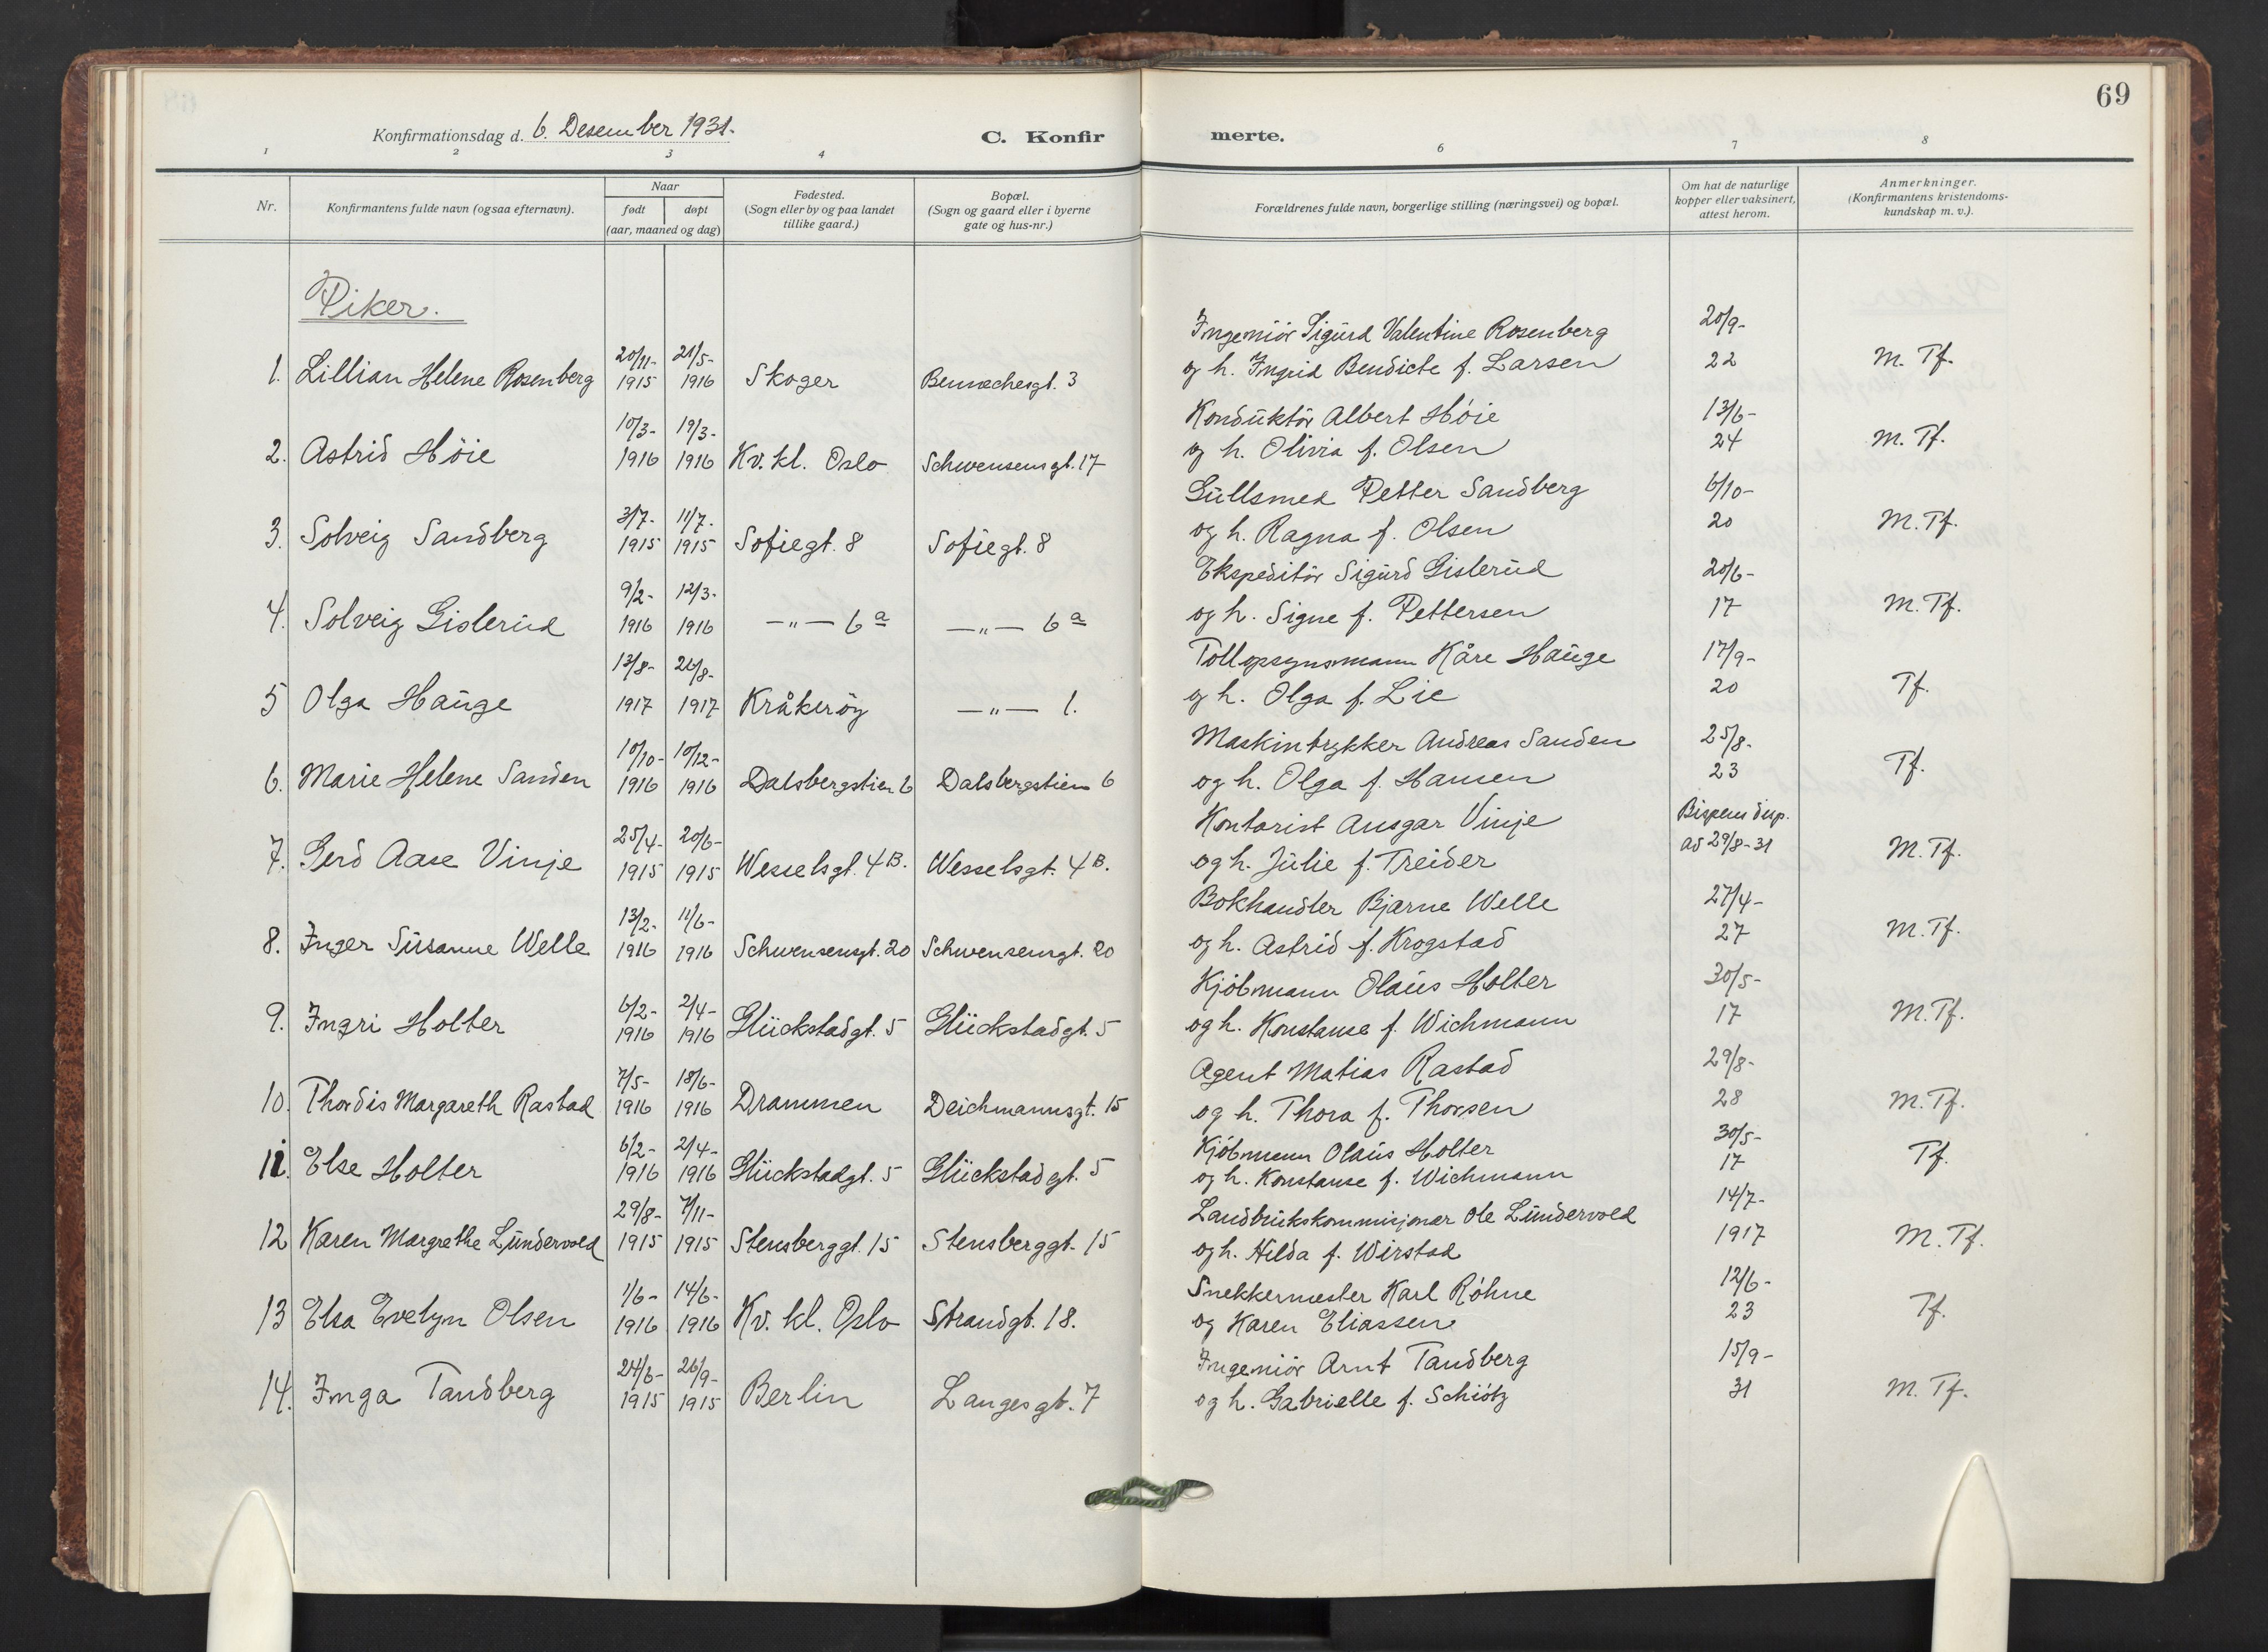 69
Konfirmationsdag d. 6. Desember 1931. C. Konfirmerte.
1 2 3 4 6 7 8
Nr. Konfirmantens fulde navn (ogsaa efternavn). Naar født døpt (aar, maaned og dag) Fødested. (Sogn eller by og paa landet tillike gaard.) Bopæl. (Sogn og gaard eller i byerne gate og hus-nr.) Forældrenes fulde navn, borgerlige stilling (næringsvei) og bopæl. Om hat de naturlige kopper eller vaksinert, attest herom. Anmerkninger. (Konfirmantens kristendoms- kundskap m. v.).
Piker.
20/11- 21/5- Ingeniör Sigurd Valentine Rosenberg 20/9-
1. Lillian Helene Rosenberg 1915 1916 Skoger Bennechesgt. 3 og h. Ingrid Bendicte f. Larsen 22 M. Tf.
10/3- 19/3- Konduktör Albert Höie 13/6-
2. Astrid Höie 1916 1916 Kv. kl. Oslo Schwensensgt. 17 og h. Olivia f. Olsen 24 M. Tf.
3/7- 11/7- Gullsmed Petter Sandberg 6/10-
3. Solveig Sandberg 1915 1915 Sofiegt. 8 Sofiegt. 8 og h. Ragna f. Olsen 20 M. Tf.
9/2- 12/3- Ekspeditör Sigurd Gislerud 20/6-
4. Solveig Gislerud 1916 1916 —"— 6a —"— 6a og h. Signe f. Pettersen 17 M. Tf.
13/8- 26/8- Tollopsynsmann Kåre Hauge 17/9-
5 Olga Hauge 1917 1917 Kråkeröy —"— 1. og h. Olga f. Lie 20 Tf.
10/10- 10/12- Maskintrykker Andreas Sanden 25/8-
6. Marie Helene Sanden 1916 1916 Dalsbergstien 6 Dalsbergstien 6 og h. Olga f. Hansen 23 Tf.
25/4- 20/6- Kontorist Ansgar Vinje Bispens disp.
7. Gerd Aase Vinje 1915 1915 Wesselsgt. 4B. Wesselsgt. 4B. og h. Julie f. Treider av 29/8-31 M. Tf.
13/2- 11/6- Bokhandler Bjarne Welle 27/4-
8. Inger Susanne Welle 1916 1916 Schwensensgt. 20 Schwensensgt. 20 og h. Astrid f. Krogstad 27 M. Tf.
6/2- 2/4- Kjöbmann Olaus Holter 30/5-
9. Ingri Holter 1916 1916 Glückstadgt. 5 Glückstadgt. 5 og h. Konstanse f. Wichmann 17 M. Tf.
7/5- 18/6- Agent Matias Rastad 29/8-
10. Thordis Margareth Rastad 1916 1916 Drammen Deichmannsgt. 15 og h. Thora f. Thorsen 28 M. Tf.
6/2- 2/4- Kjöbmann Olaus Holter 30/5-
11. Else Holter 1916 1916 Glückstadgt. 5 Glückstadgt. 5 og h. Konstanse f. Wichmann 17 Tf.
29/8- 7/11- Landbrukskommisjonær Ole Lundervold 14/7-
12 Karen Margrethe Lundervold 1915 1915 Stensberggt. 15 Stensberggt. 15 og h. Hilda f. Wirstad 1917 M. Tf.
1/6- 14/6- Snekkermester Karl Röhne 12/6-
13 Elsa Evelyn Olsen 1916 1916 Kv. kl. Oslo Strandgt. 18. og Karen Eliassen 23 Tf.
24/6- 26/9- Ingeniör Arnt Tandberg 15/9-
14. Inga Tandberg 1915 1915 Berlin Langesgt. 7 og h. Gabrielle f. Schiötz 31 M. Tf.